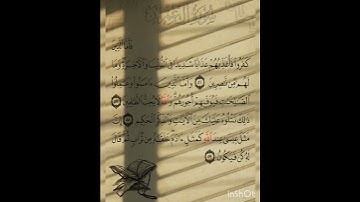 فَأَمَّا الَّذِينَ
كَفَرُوا فَأُعَذِّبُهُمْ عَذَابًا شَدِيدًا فِي الدُّنْيَا وَالْآخِرَةِ وَمَا
لَهُم مِّن نَّاصِرِينَ ۝ وَأَمَّا الَّذِينَ ءَامَنُوا وَعَمِلُوا
الصَّالِحَاتِ فَيُوَفِّيهِمْ أُجُورَهُمْ وَاللَّهُ لَا يُحِبُّ الظَّالِمِينَ ۝
ذَٰلِكَ نَتْلُوهُ عَلَيْكَ مِنَ الْآيَاتِ وَالذِّكْرِ الْحَكِيمِ ۝ إِنَّ
مَثَلَ عِيسَىٰ عِندَ اللَّهِ كَمَثَلِ ءَادَمَ خَلَقَهُ مِن تُرَابٍ ثُمَّ قَالَ
لَهُ كُن فَيَكُونُ ۝
InShOt